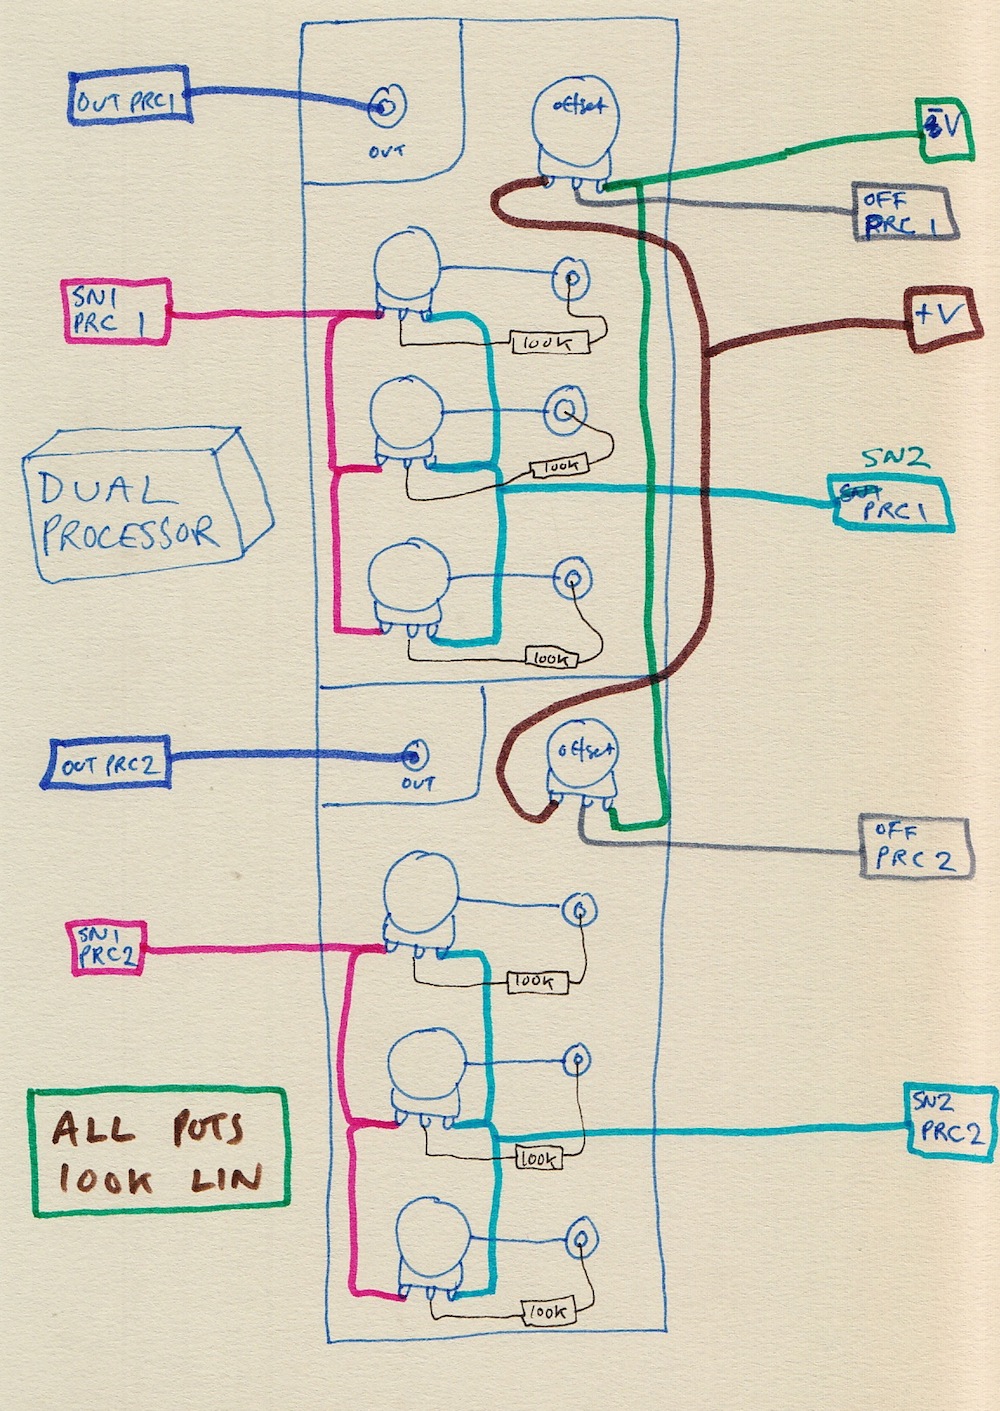 OUT PRC1
OUT
offset
-V
OFF
PRC 1
SN1
PRC 1
100K
+V
100K
SN2
PRC1
DUAL
PROCESSOR
100K
OUT PRC2
OUT
offset
OFF
PRC 2
SN1
PRC2
100K
ALL POTS
100K LIN
100K
SN2
PRC2
100K